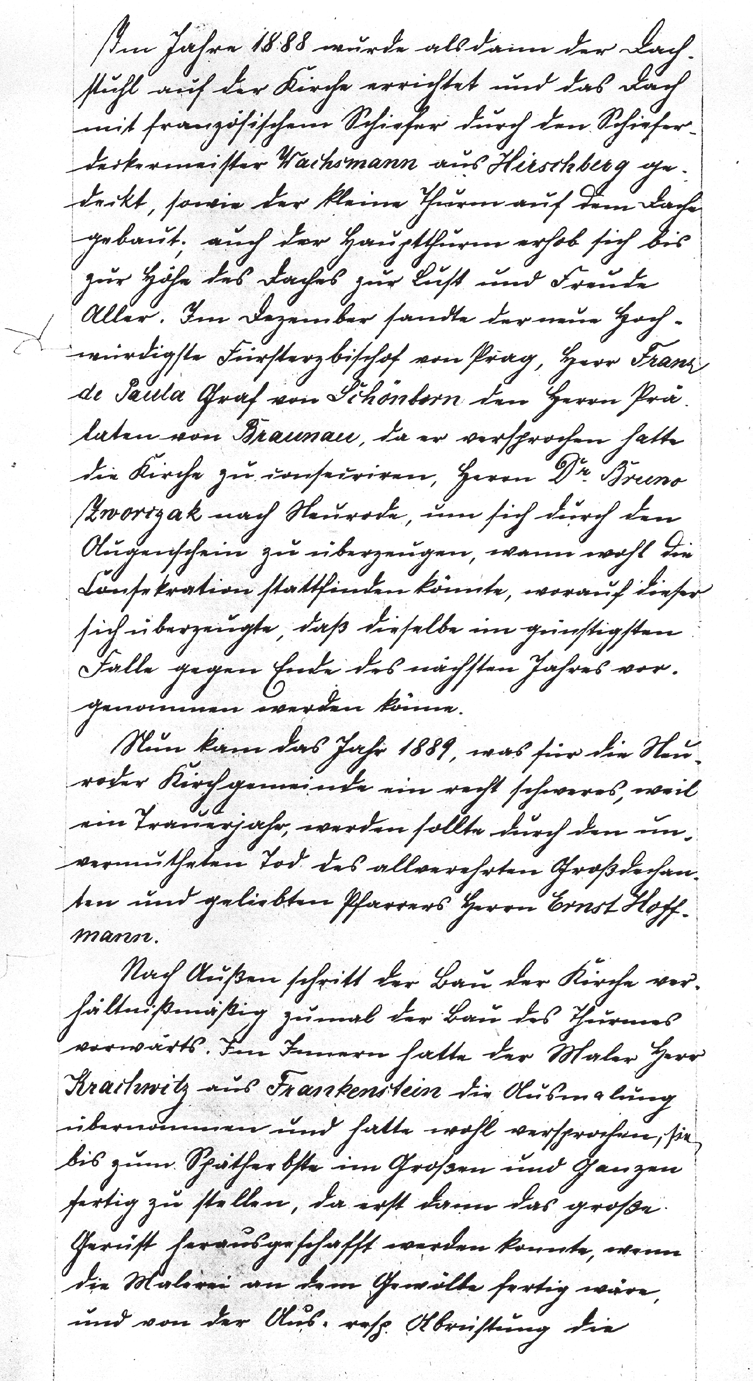 Im Jahre 1888 wurde alsdann der Dach-
stuhl auf der Kirche errichtet und das Dach
mit französischem Schiefer durch den Schiefer-
deckermeister Wachsmann aus Hirschberg ge-
deckt, sowie der kleine Thurm auf dem Dache
gebaut; auch der Hauptthurm erhob sich bis
zur Höhe des Daches zur Lust und Freude
Aller. Im Dezember sandte der neue Hoch-
würdigste Fürsterzbischof von Prag, Herr Franz
de Paula Graf von Schönborn den Herrn Prä-
laten von Braunau, da er versprochen hatte
die Kirche zu consecriren, Herrn Dr. Bruno
Zworczak nach Neurode, um sich durch den
Augenschein zu überzeugen, wann wohl die
Consekration stattfinden könnte, worauf dieser
sich überzeugte, daß dieselbe im günstigsten
Falle gegen Ende des nächsten Jahres vor-
genommen werden könne.
Nun kam das Jahr 1889, was für die Neu-
roder Kirchgemeinde ein recht schweres, weil
ein Trauerjahr, werden sollte durch den un-
vermutheten Tod des allverehrten Großdechan-
ten und geliebten Pfarrers Herrn Ernst Hoff-
mann.
Nach Außen schritt der Bau der Kirche ver-
hältnißmäßig zumal der Bau des Thurmes
vorwärts. Im Innern hatte der Maler Herr
Krachwitz aus Frankenstein die Ausmalung
übernommen und hatte wohl versprochen, sie
bis zum Spätherbste im Großen und Ganzen
fertig zu stellen, da erst dann das große
Gerüst herausgeschafft werden konnte, wenn
die Malerei an dem Gewölbe fertig wäre,
und von der Aus- resp. Abrüstung die